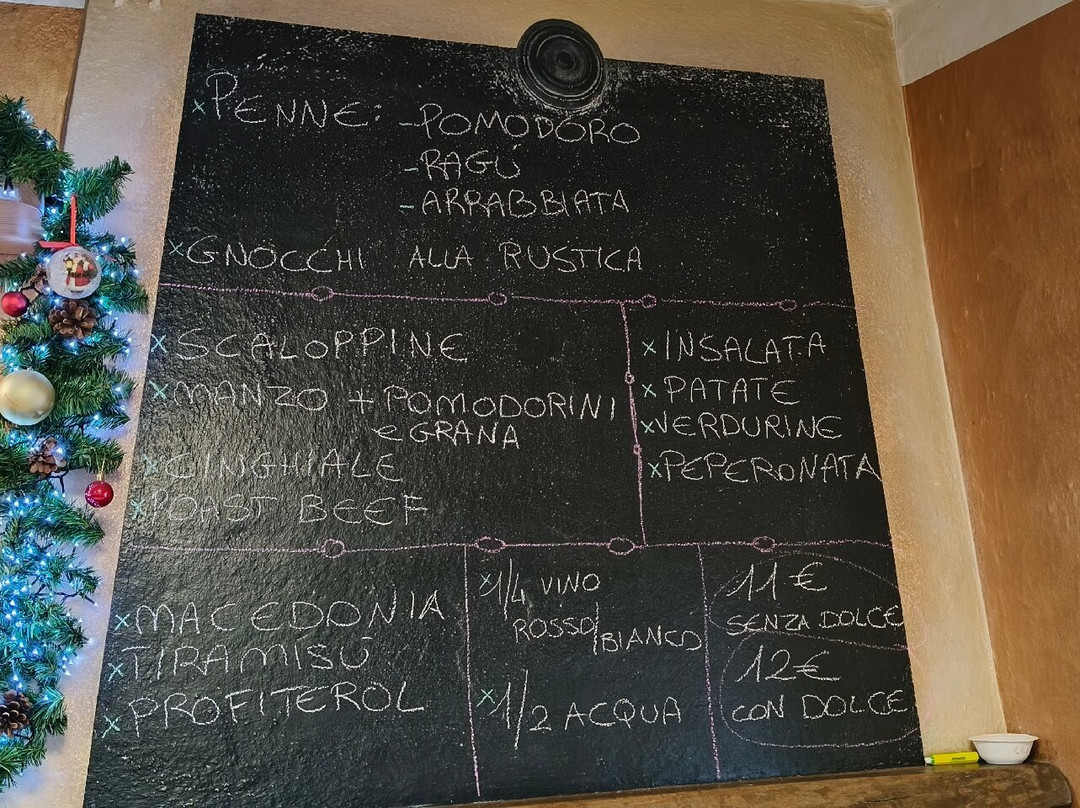 x PENNE: - POMODORO
- RAGÚ
- ARRABBIATA
x GNOCCHI ALLA RUSTICA
x SCALOPPINE
x MANZO + POMODORINI
e GRANA
x CINGHIALE
x ROAST BEEF
x INSALATA
x PATATE
x VERDURINE
x PEPERONATA
x MACEDONIA
x TIRAMISÚ
x PROFITEROL
x 1/4 VINO
ROSSO/BIANCO
x 1/2 ACQUA
11 €
SENZA DOLCE
12 €
CON DOLCE